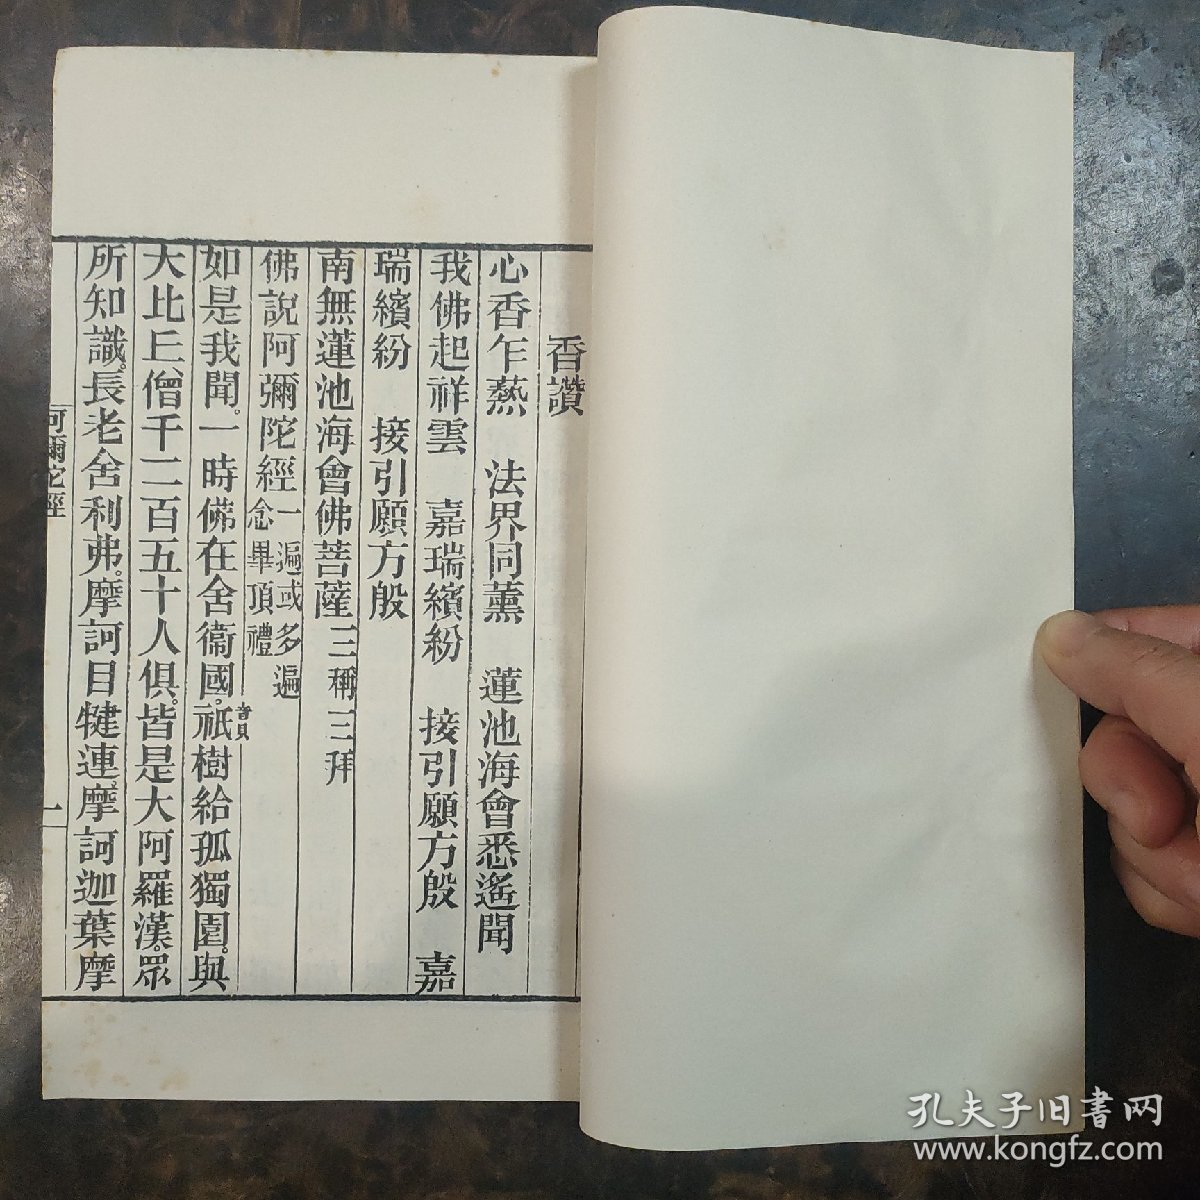 香讚
心香乍爇　法界同薰　蓮池海會悉遙聞
我佛起祥雲　嘉瑞繽紛　接引願方殷　嘉
瑞繽紛　接引願方殷
南無蓮池海會佛菩薩三稱三拜
佛說阿彌陀經一遍或多遍
念畢頂禮
如是我聞。一時佛在舍衞國。祇樹給孤獨園。與
大比丘僧千二百五十人俱。皆是大阿羅漢。眾
所知識。長老舍利弗。摩訶目犍連。摩訶迦葉摩
阿彌陀經
一
孔夫子旧書网
www.kongfz.com